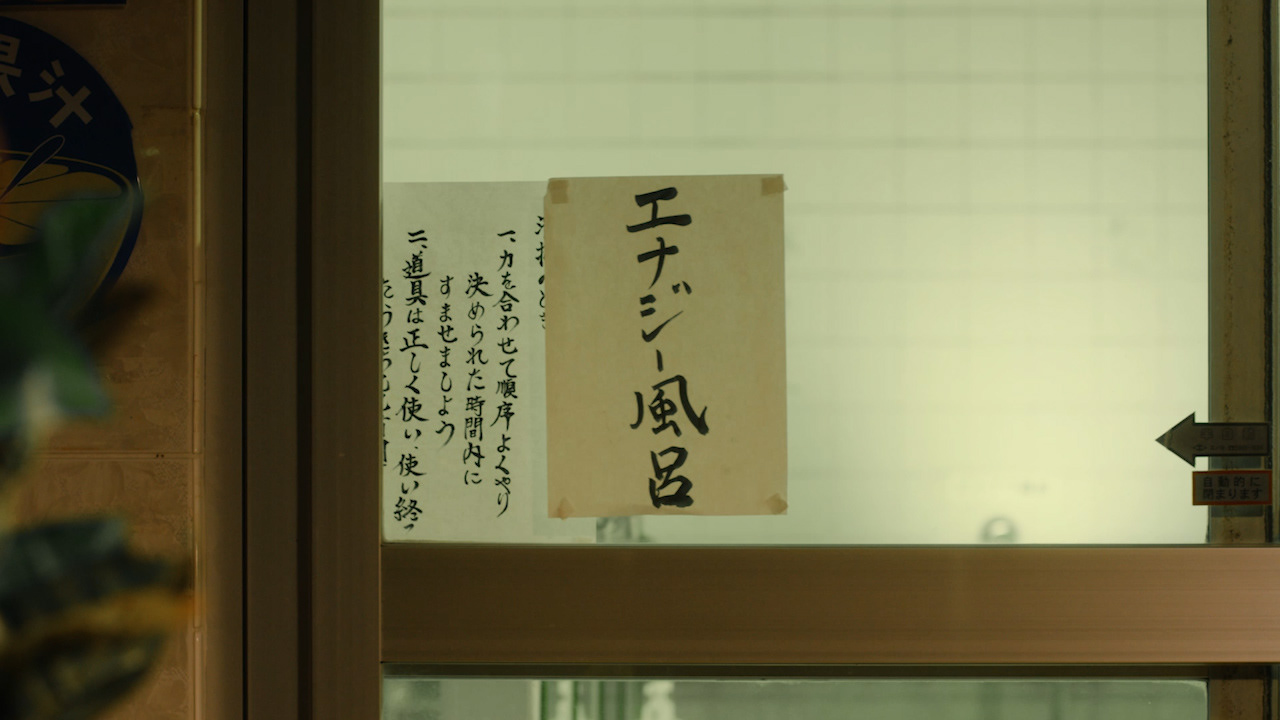 エナジー風呂
一、力を合わせて順序よくやり
決められた時間内に
すませましよう
二、道具は正しく使い、使い終
自動的に
閉まります
果汁